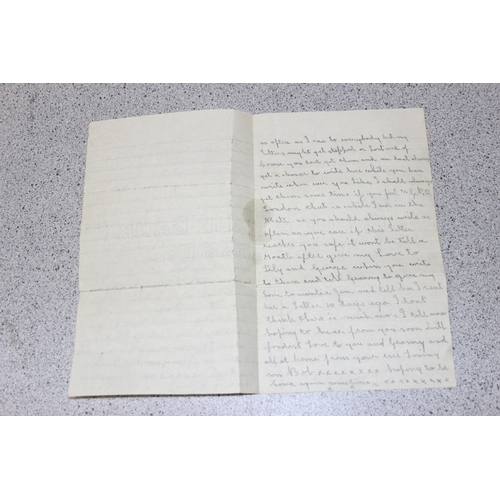 as often as I can to everybody but my
letters might get stopped or lost and of
course you dont get them and we dont always
get a chance to write but while you can
write when ever you like, I shall always
get them some time if you put G.P.O
London that is while I am in the
so you should always write as
often as you can if this letter
reaches you safe it wont be till a
Month after give my Love to
Lily and George when you write
to them and tell Granny to give my
Love to and tell her I sent
her a letter 10 days ago I dont
think there is much more I tell now
hoping to hear from you soon with
fondest love to you and Granny and
all at home from your ever loving
son Bob xxxxxxxx hoping to be
home again xxxxxxxx